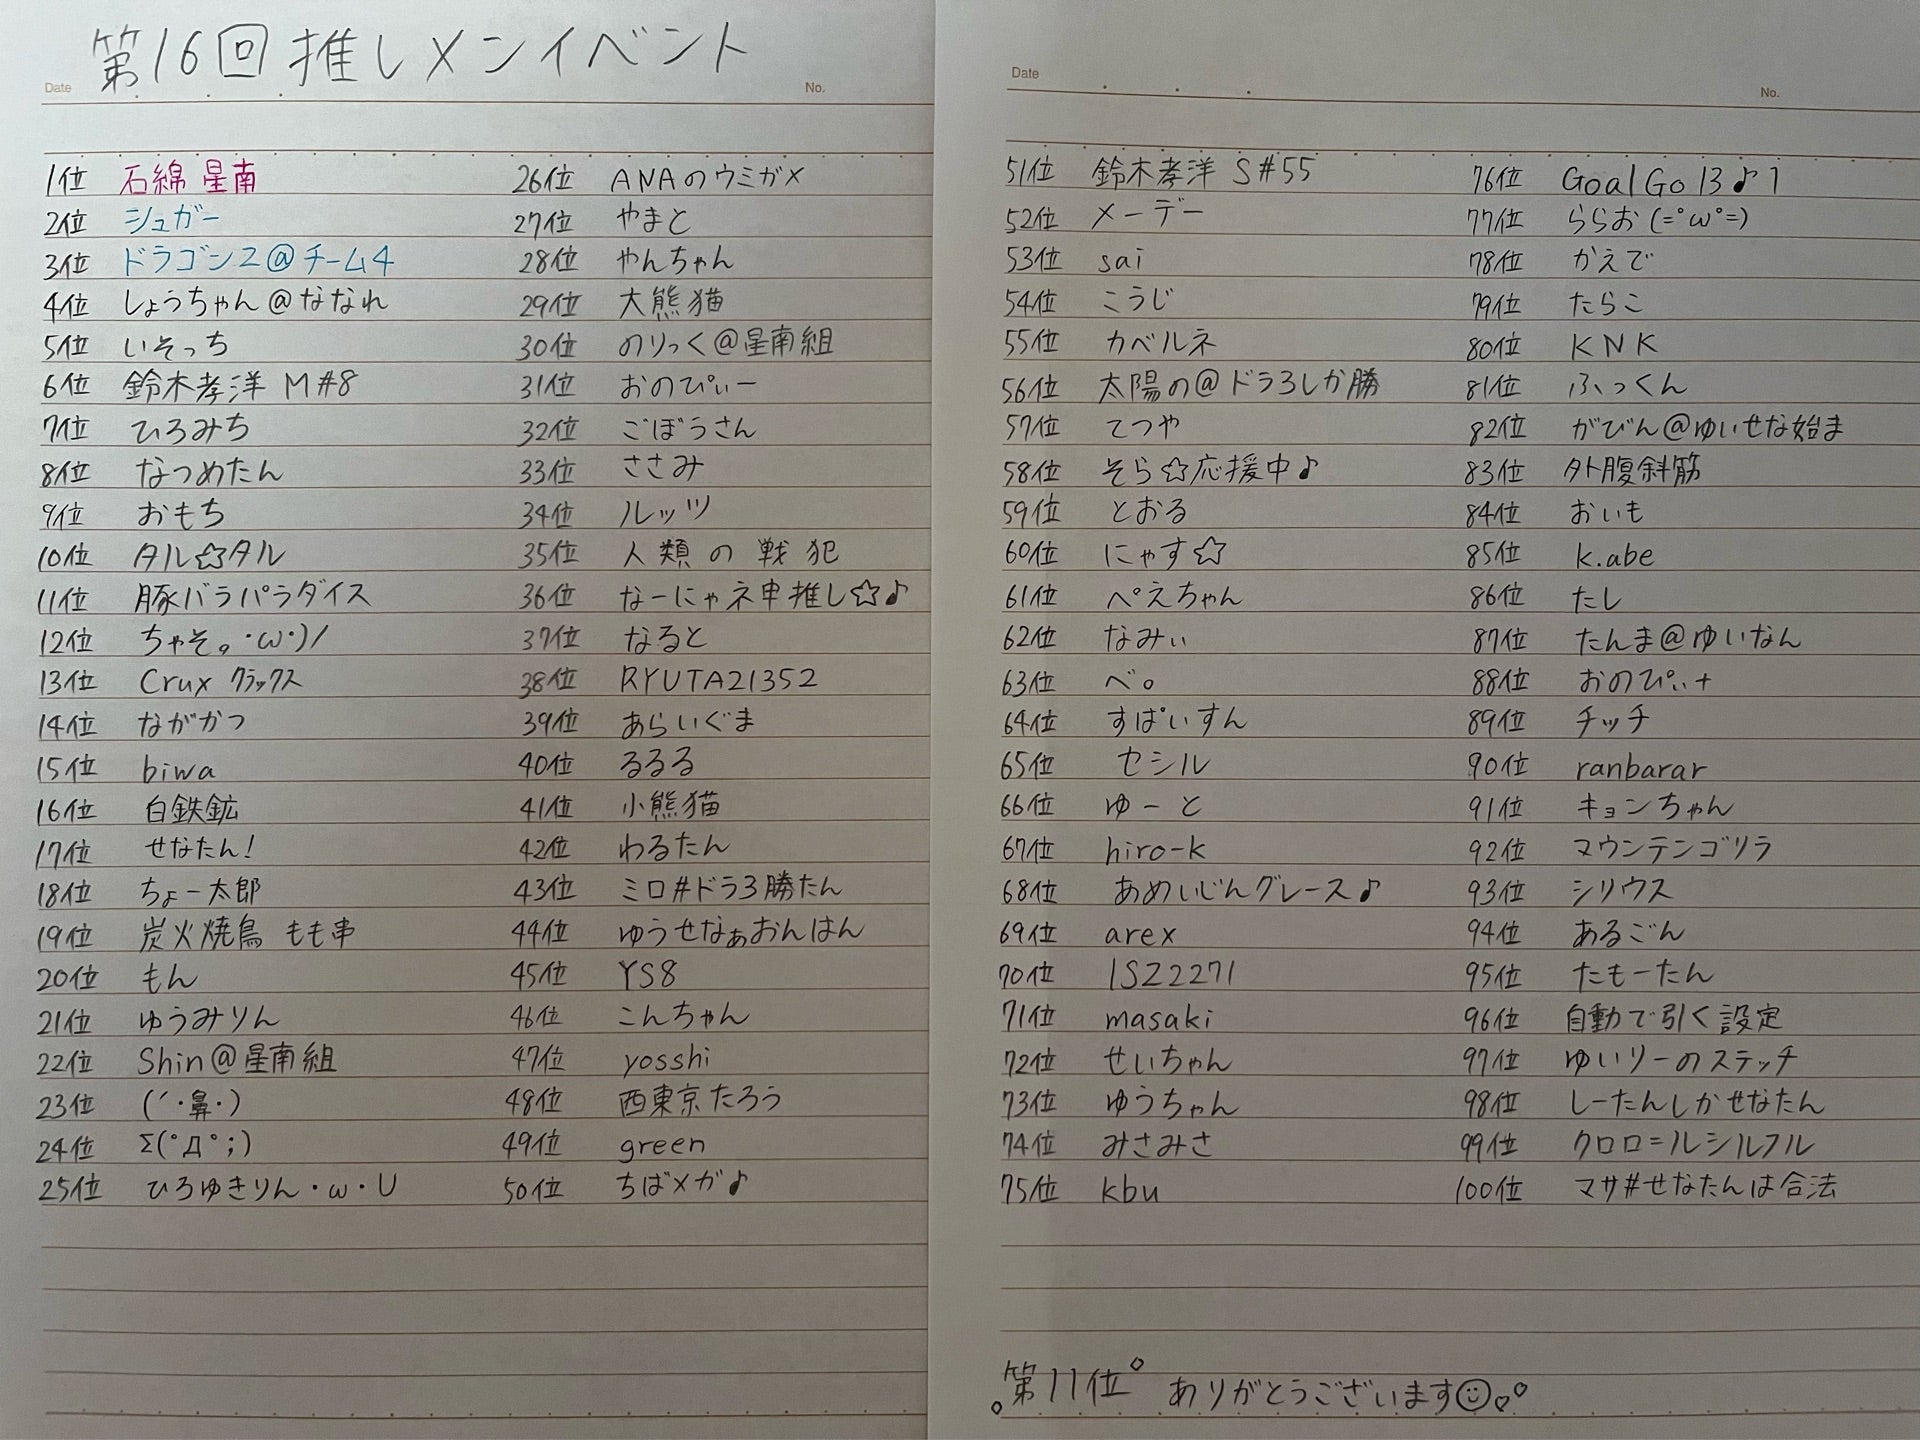 第16回推しメンイベント
Date
No.
1位 石綿星南
2位 シュガー
3位 ドラゴン2@チーム4
4位 しょうちゃん@ななれ
5位 いそっち
6位 鈴木孝洋 M#8
7位 ひろみち
8位 なつめたん
9位 おもち
10位 タル☆タル
11位 豚バラパラダイス
12位 ちゃそ。・ω・)ノ
13位 Crux クラックス
14位 ながかつ
15位 biwa
16位 白鉄鉱
17位 せなたん!
18位 ちょー太郎
19位 炭火焼鳥 もも串
20位 もん
21位 ゆうみりん
22位 Shin@星南組
23位 (´・鼻・)
24位 Σ(ﾟДﾟ;)
25位 ひろゆきりん・ω・U
26位 ANAのウミガメ
27位 やまと
28位 やんちゃん
29位 大熊猫
30位 のりっく@星南組
31位 おのぴぃー
32位 ごぼうさん
33位 ささみ
34位 ルッツ
35位 人類の戦犯
36位 なーにゃネ申推し☆♪
37位 なると
38位 RYUTA21352
39位 あらいぐま
40位 るるる
41位 小熊猫
42位 わるたん
43位 ミロ#ドラ3勝たん
44位 ゆうせなぁおんはん
45位 YS8
46位 こんちゃん
47位 yosshi
48位 西東京たろう
49位 green
50位 ちばメガ♪
Date
No.
51位 鈴木孝洋 S#55
52位 メーデー
53位 sai
54位 こうじ
55位 カベルネ
56位 太陽の@ドラ3しか勝
57位 てつや
58位 そら☆応援中♪
59位 とおる
60位 にゃす☆
61位 ぺえちゃん
62位 なみぃ
63位 べ。
64位 すぱいすん
65位 セシル
66位 ゆーと
67位 hiro-k
68位 あめいじんグレース♪
69位 arex
70位 ISZ2271
71位 masaki
72位 せいちゃん
73位 ゆうちゃん
74位 みさみさ
75位 kbu
76位 GoalGo13♪1
77位 ららお(=ﾟωﾟ=)
78位 かえで
79位 たらこ
80位 KNK
81位 ふっくん
82位 がびん@ゆいせな始ま
83位 外腹斜筋
84位 おいも
85位 k.abe
86位 たし
87位 たんま@ゆいなん
88位 おのぴぃ+
89位 チッチ
90位 ranbarar
91位 キョンちゃん
92位 マウンテンゴリラ
93位 シリウス
94位 あるごん
95位 たもーたん
96位 自動で引く設定
97位 ゆいりーのステッチ
98位 しーたんしかせなたん
99位 クロロ=ルシルフル
100位 マサ#せなたんは合法
第11位 ありがとうございます